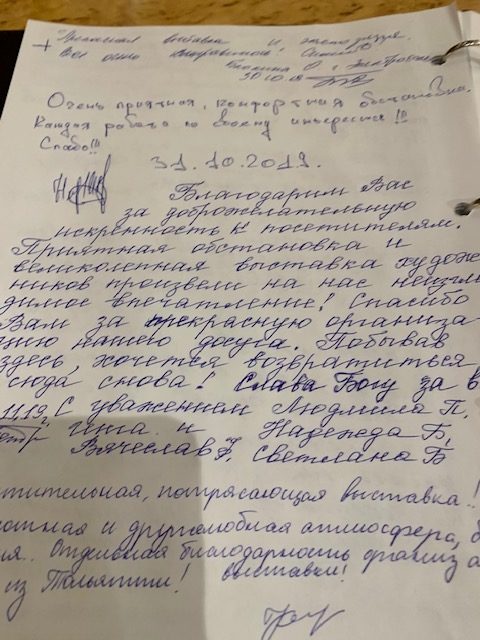 выставка и
Все очень понравилось!
30.10.19
Очень приятная, комфортная обстановка.
Каждая работа по своему интересна!!!
Спасибо!!!
31.10.2019.
Благодарим Вас
за доброжелательную
искренность к посетителям.
Приятная обстановка и
великолепная выставка худож
ников произвели на нас неизгла
димое впечатление! Спасибо
Вам за прекрасную организа
цию нашего досуга. Побывав
здесь, хочется возвратиться
сюда снова! Слава Богу за в
11.19. С уважением Людмила П,
и Надежда Б,
Вячеслав Светлана Б
тительная, потрясающая выставка!
и дружелюбная атмосфера, б
ия.. Отдельная благодарность организа
из Тольятти! выставки!